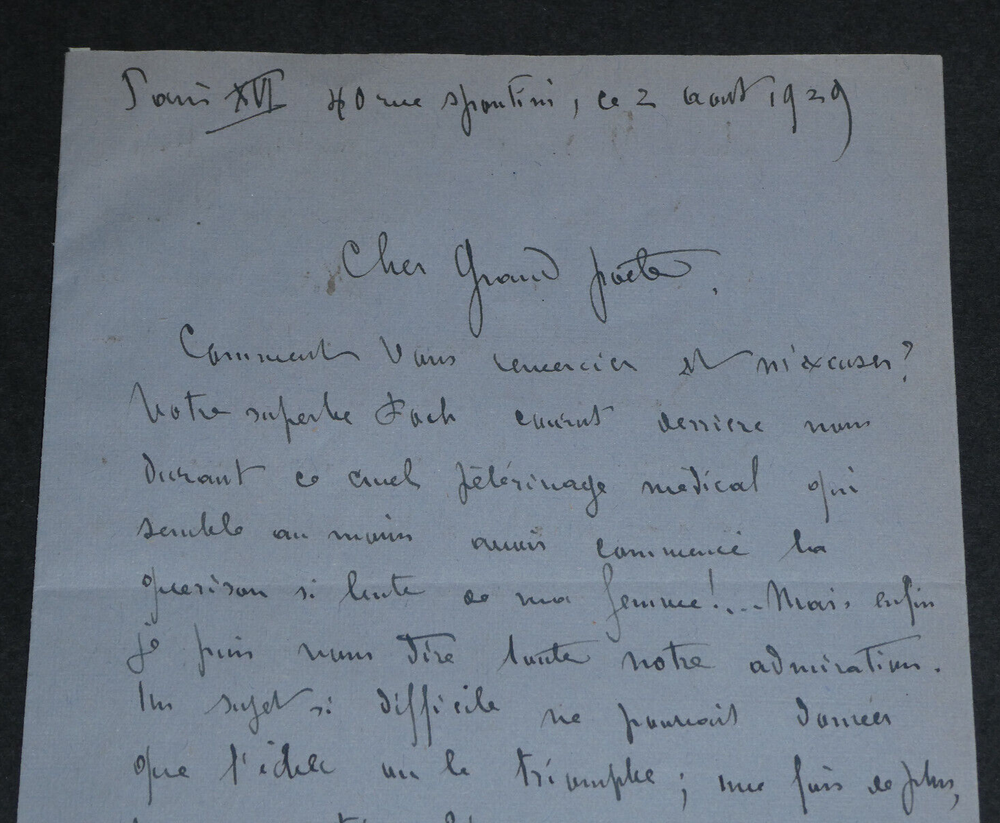 Paris XVI 40 rue Spontini, ce 2 aout 1929
Cher Grand poète,
Comment vous remercier et m'excuser?
Votre superbe Foch courut derriere nous
durant ce cruel pélérinage médical qui
semble au moins avoir commencé la
guerison si lente de ma femme!... Mais enfin
je puis vous dire toute notre admiration.
Un sujet si difficile ne pouvait donner
que l'échec ou le triomphe; une fois de plus,